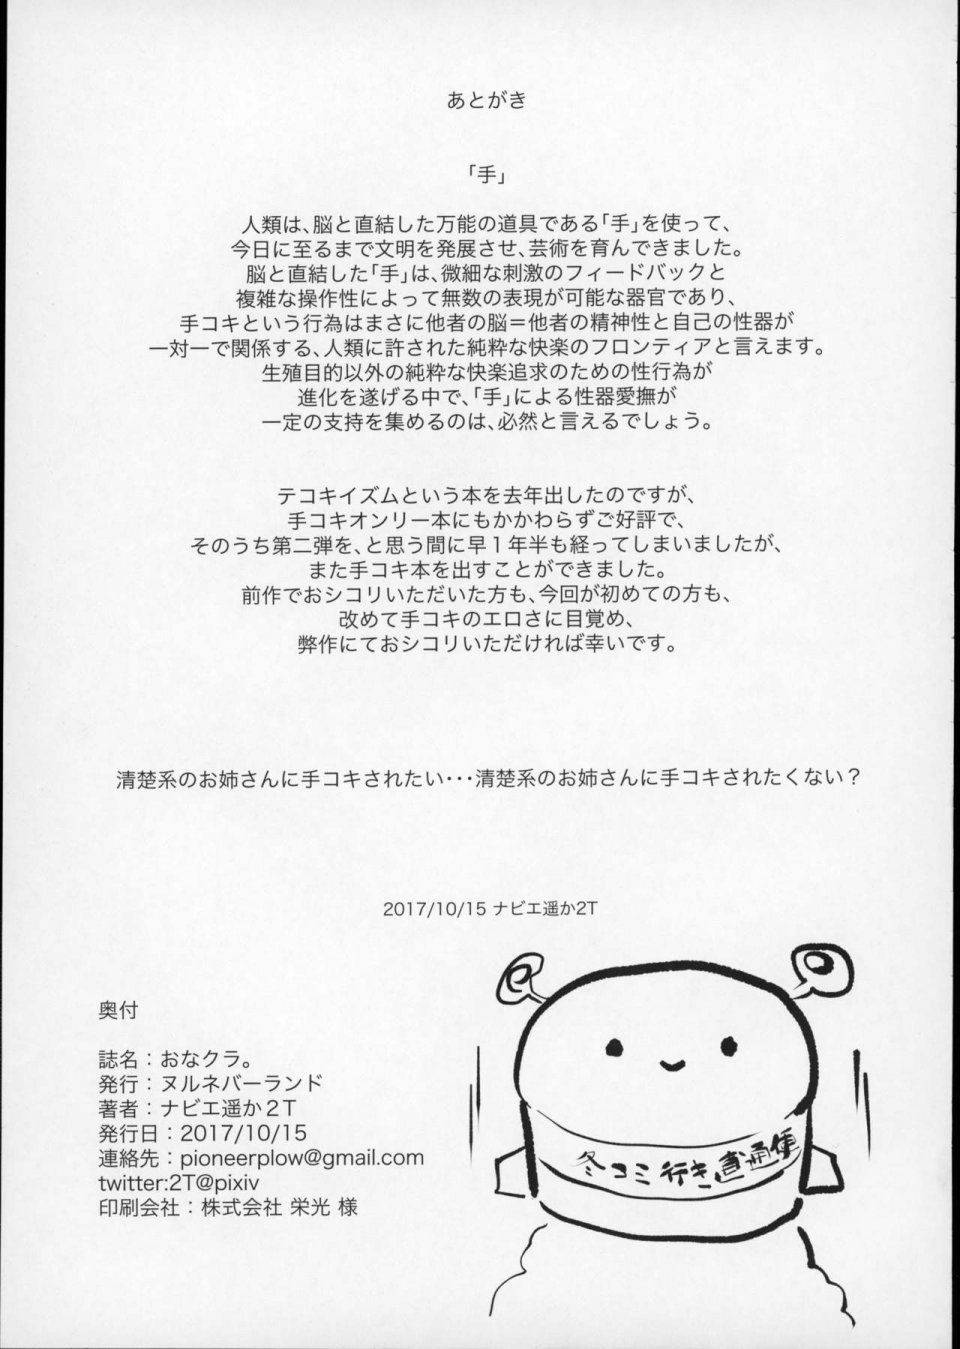 あとがき
「手」
人類は、脳と直結した万能の道具である「手」を使って、
今日に至るまで文明を発展させ、芸術を育んできました。
脳と直結した「手」は、微細な刺激のフィードバックと
複雑な操作性によって無数の表現が可能な器官であり、
手コキという行為はまさに他者の脳＝他者の精神性と自己の性器が
一対一で関係する、人類に許された純粋な快楽のフロンティアと言えます。
生殖目的以外の純粋な快楽追求のための性行為が
進化を遂げる中で、「手」による性器愛撫が
一定の支持を集めるのは、必然と言えるでしょう。
テコキイズムという本を去年出したのですが、
手コキオンリー本にもかかわらずご好評で、
そのうち第二弾を、と思う間に早１年半も経ってしまいましたが、
また手コキ本を出すことができました。
前作でおシコリいただいた方も、今回が初めての方も、
改めて手コキのエロさに目覚め、
弊作にておシコリいただければ幸いです。
清楚系のお姉さんに手コキされたい･･･清楚系のお姉さんに手コキされたくない？
2017/10/15 ナビエ遥か2T
奥付
誌名：おなクラ。
発行：ヌルネバーランド
著者：ナビエ遥か２Ｔ
発行日：2017/10/15
連絡先：pioneerplow@gmail.com
twitter:2T@pixiv
印刷会社：株式会社 栄光 様
冬コミ行き直通便